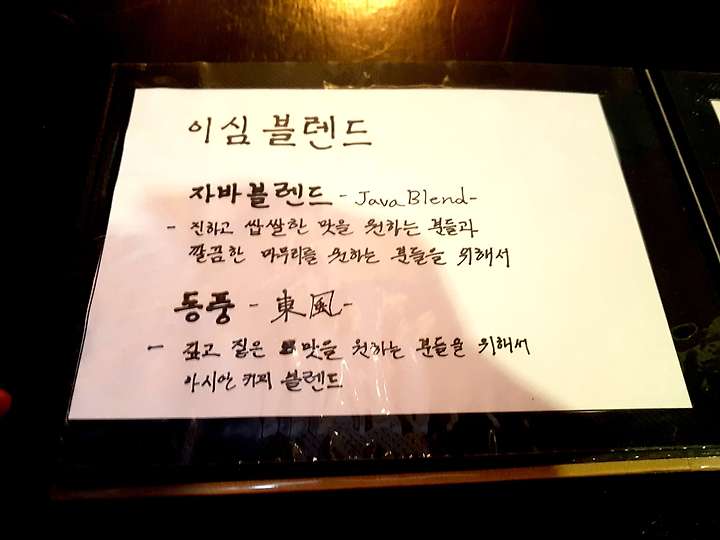 이심 블렌드
자바블렌드 - Java Blend-
- 진하고 쌉쌀한 맛을 원하는 분들과
깔끔한 마무리를 원하는 분들을 위해서
동풍 - 東風-
- 깊고 짙은 맛을 원하는 분들을 위해서
아시안 커피 블렌드